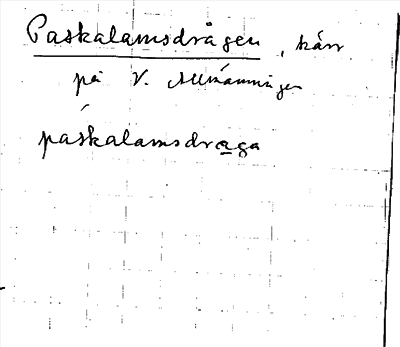 Paskalamsdrågen, kärr
på V. Allmänningen
páskalamsdraga